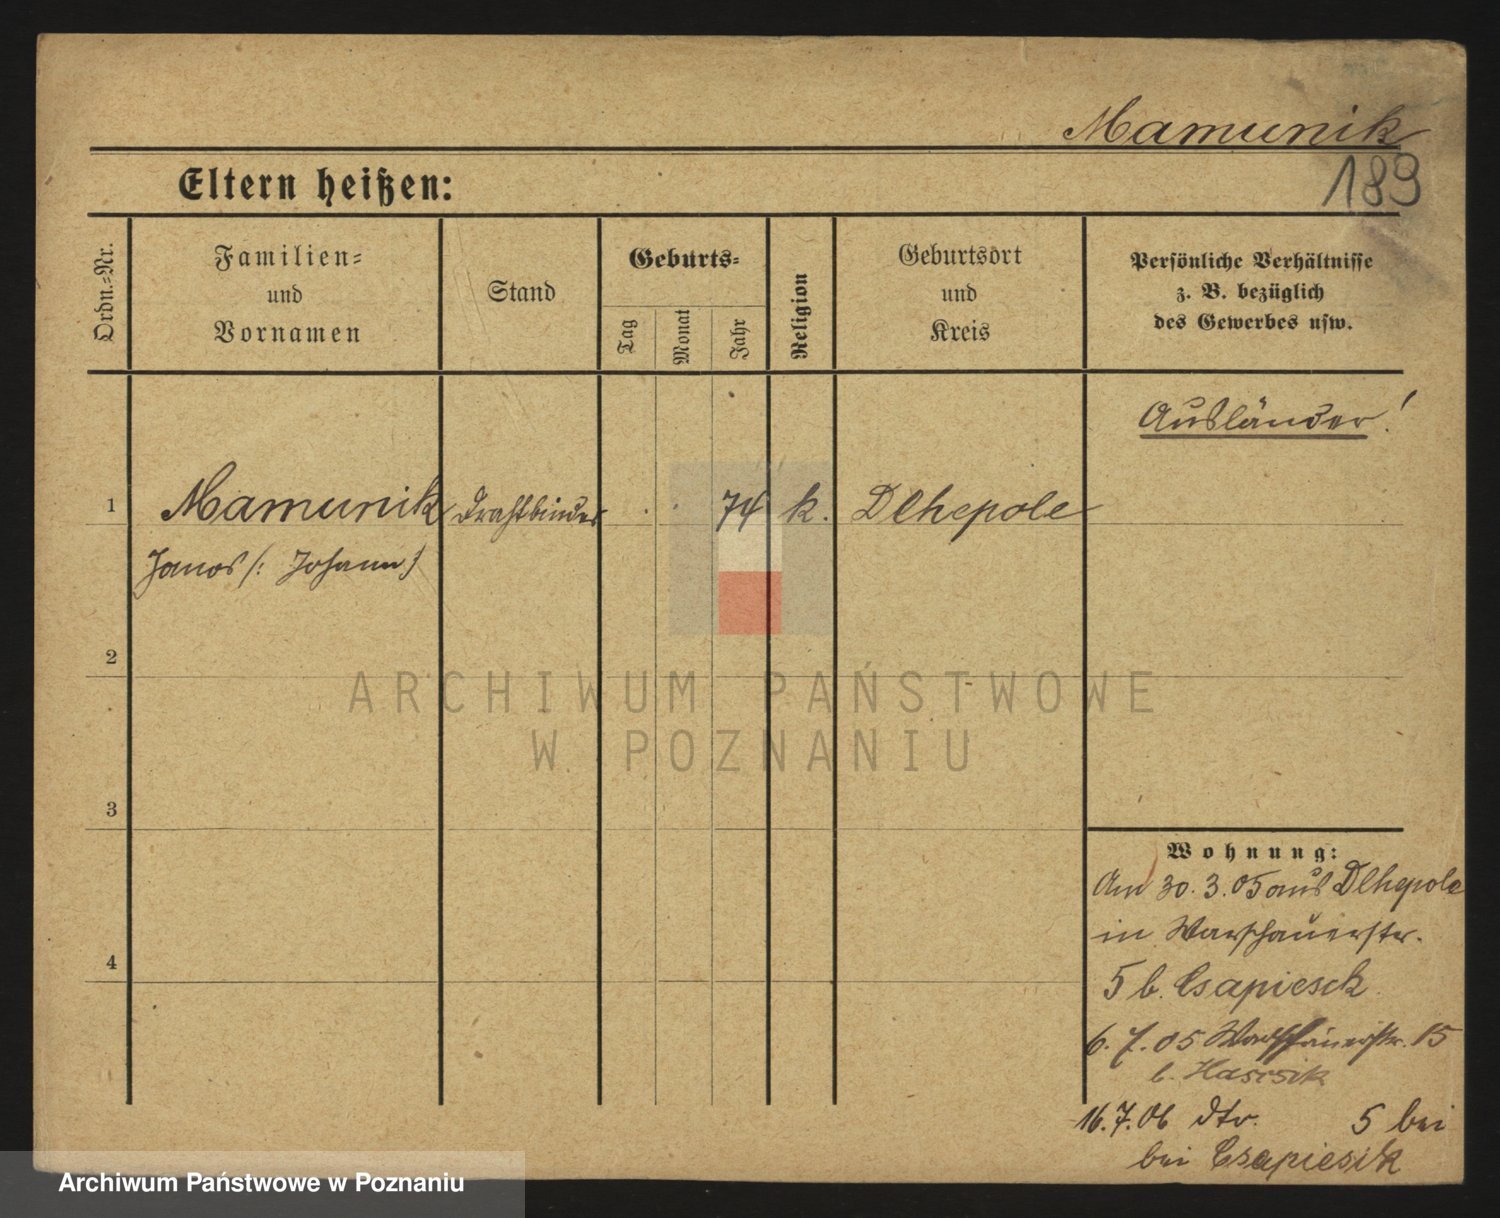 Mamunik
189
Eltern heißen:
Ordn.-Nr.
Familien-
und
Vornamen
Stand
Geburts-
Tag
Monat
Jahr
Religion
Geburtsort
und
Kreis
Persönliche Verhältnisse
z. B. bezüglich
des Gewerbes usw.
Ausländer!
1
Mamunik Drahtbinder 74 k. Dlhepole
Janos (: Johann)
2
ARCHIWUM PAŃSTWOWE
W POZNANIU
3
Wohnung:
Am 30.3.05 aus Dlhepole
in Warschauerstr.
4
5 b. Csapiesck
6.7.05 Warschauerstr. 15
b. Hascsik
16.7.06 dto. 5 bei
bei Csapiesik
Archiwum Państwowe w Poznaniu